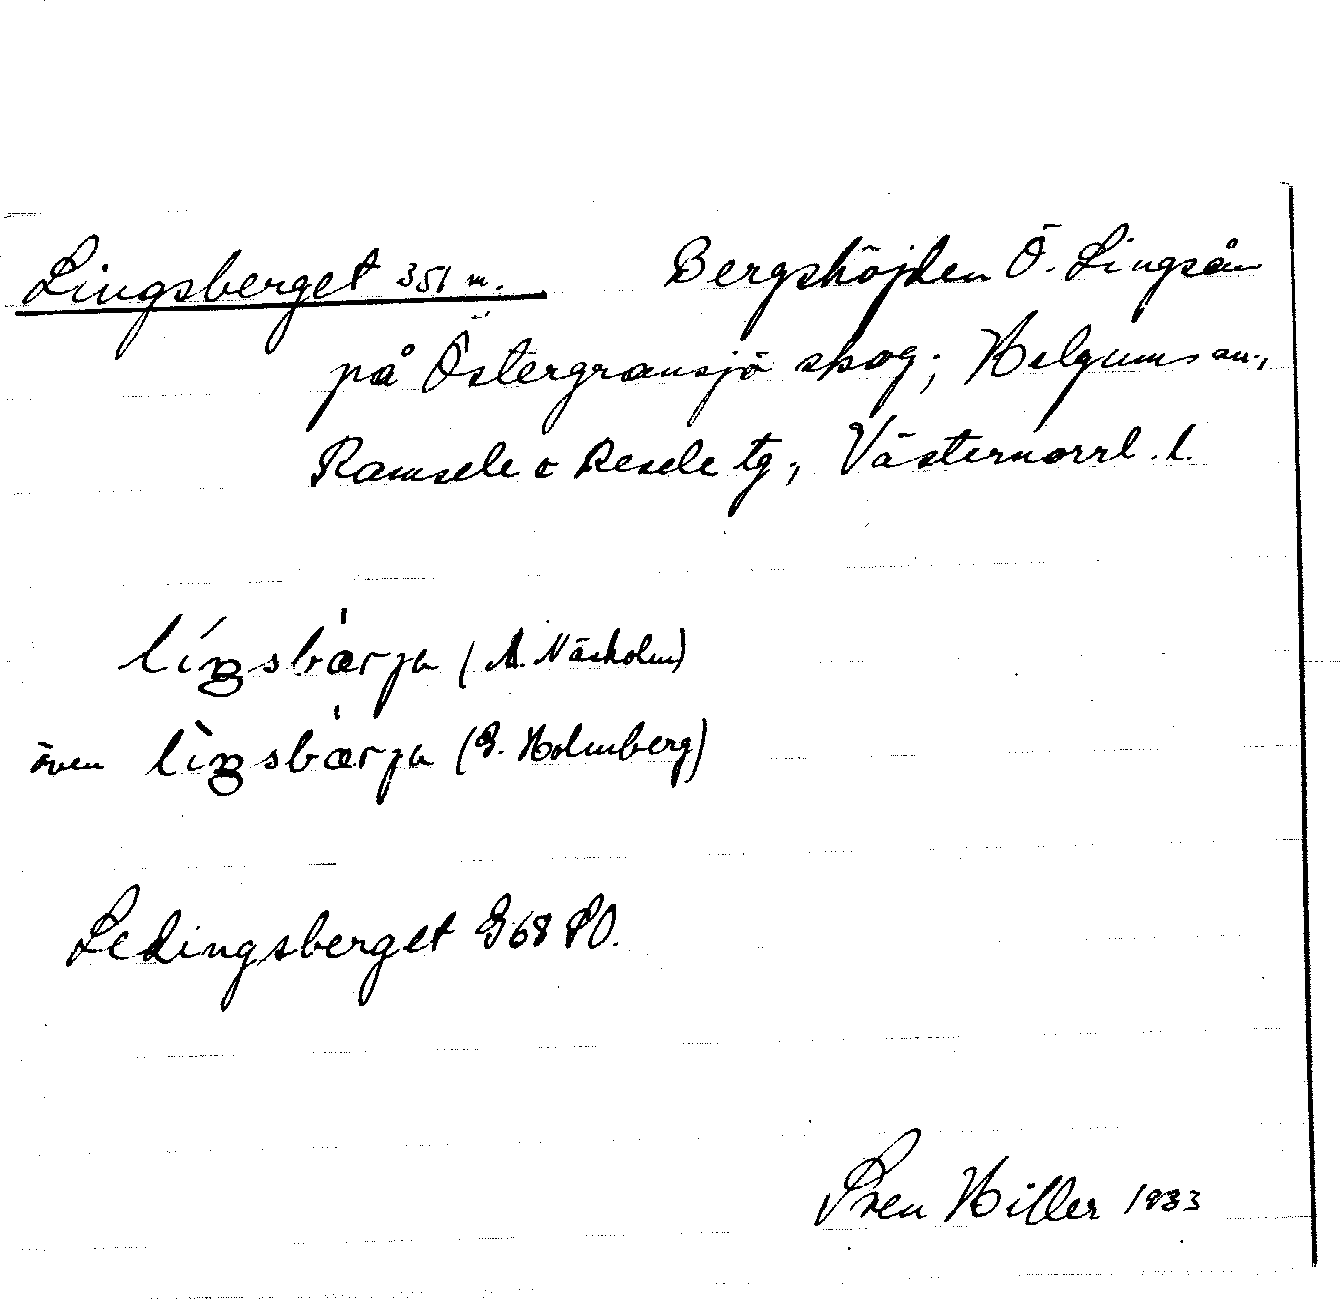 Lingsberget 351 m. Bergshöjden Ö. Lingsån
på Östergransjö skog; Helgums sn.,
Ramsele o Resele tg., Västernorrl. l.
líŋsbær̍ja (A. Näsholm)
även lìŋsbær̍ja (E. Holmberg)
Ledingsberget G68 SO.
Sven Hiller 1933